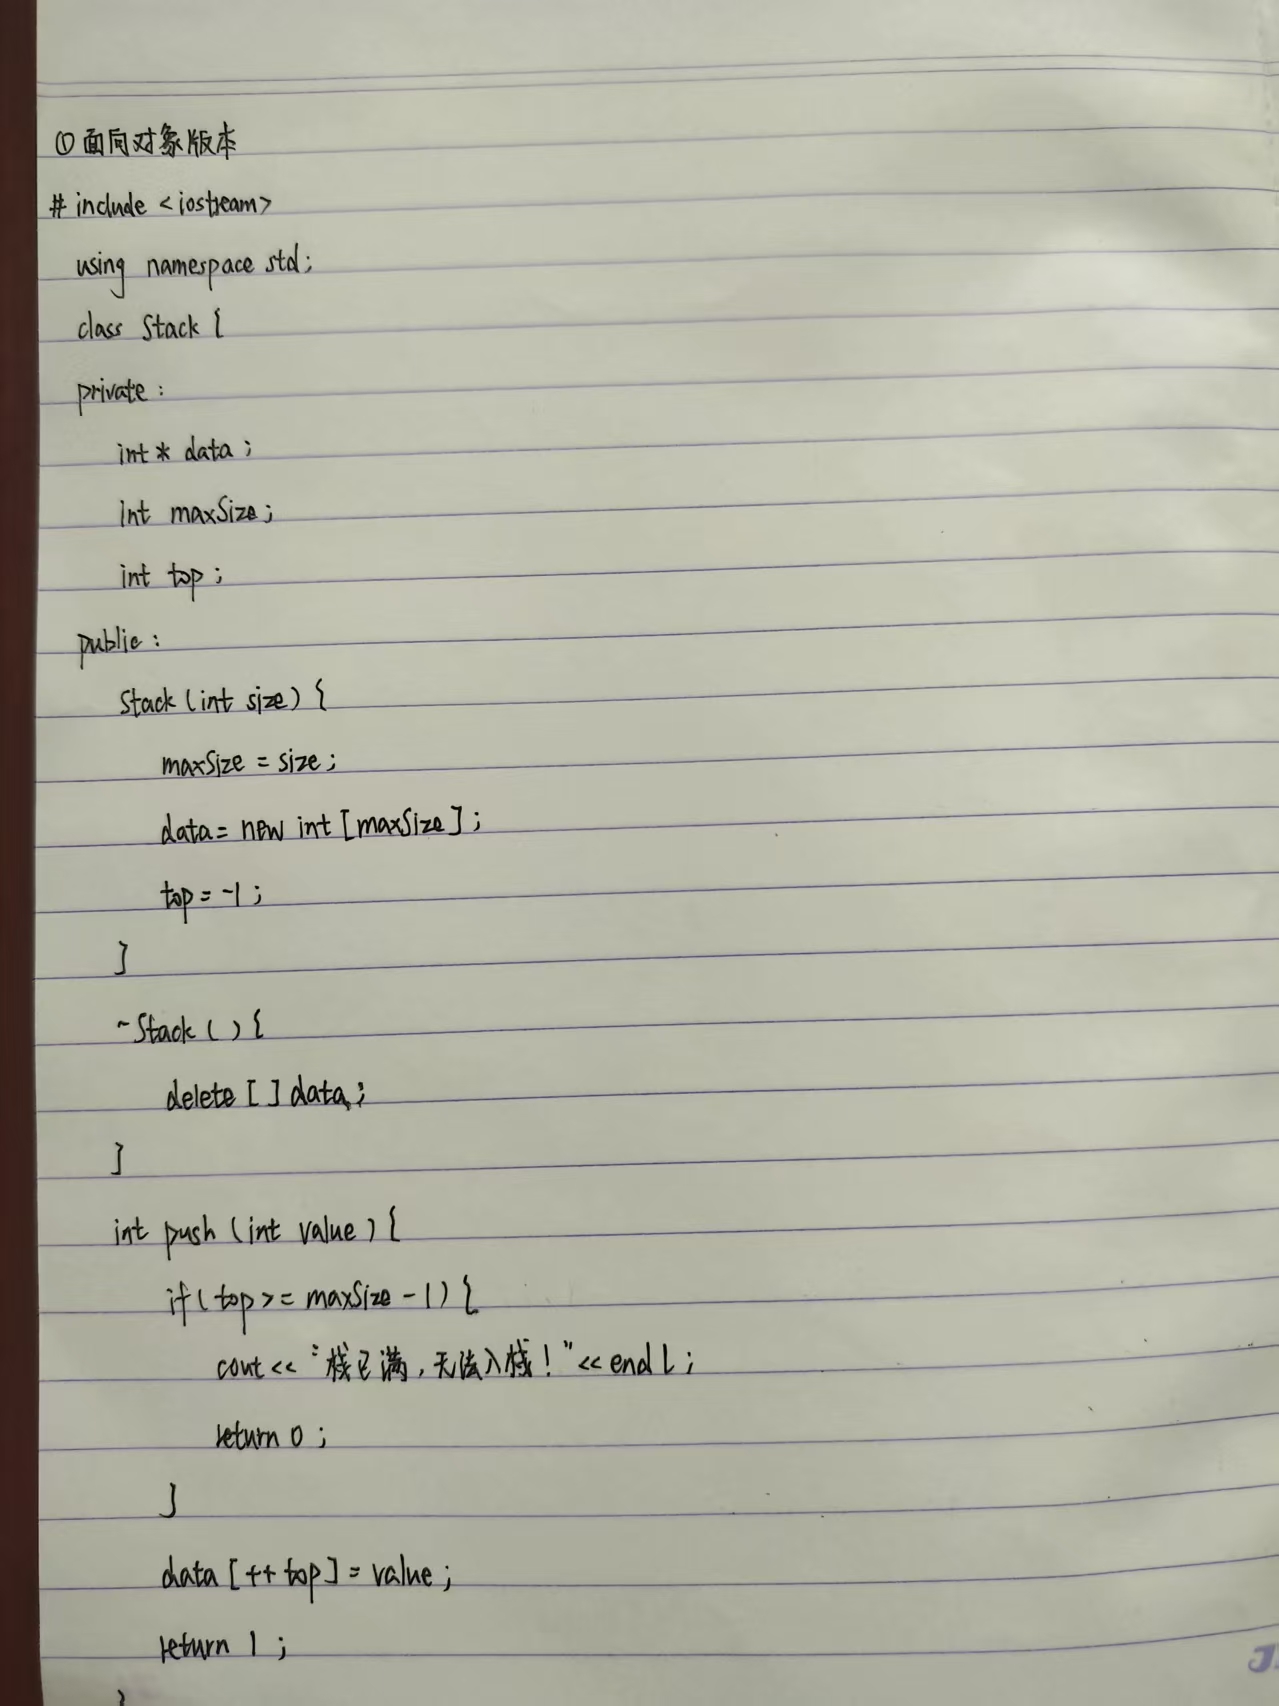 ①面向对象版本
# include <iostream>
using namespace std;
class Stack {
private:
int* data;
int maxSize;
int top;
public:
Stack(int size) {
maxSize = size;
data = new int [maxSize];
top = -1;
}
~Stack() {
delete [] data;
}
int push (int value) {
if (top >= maxSize - 1) {
cout << "栈已满，无法入栈！" << endl;
return 0;
}
data [++top] = value;
return 1;
}